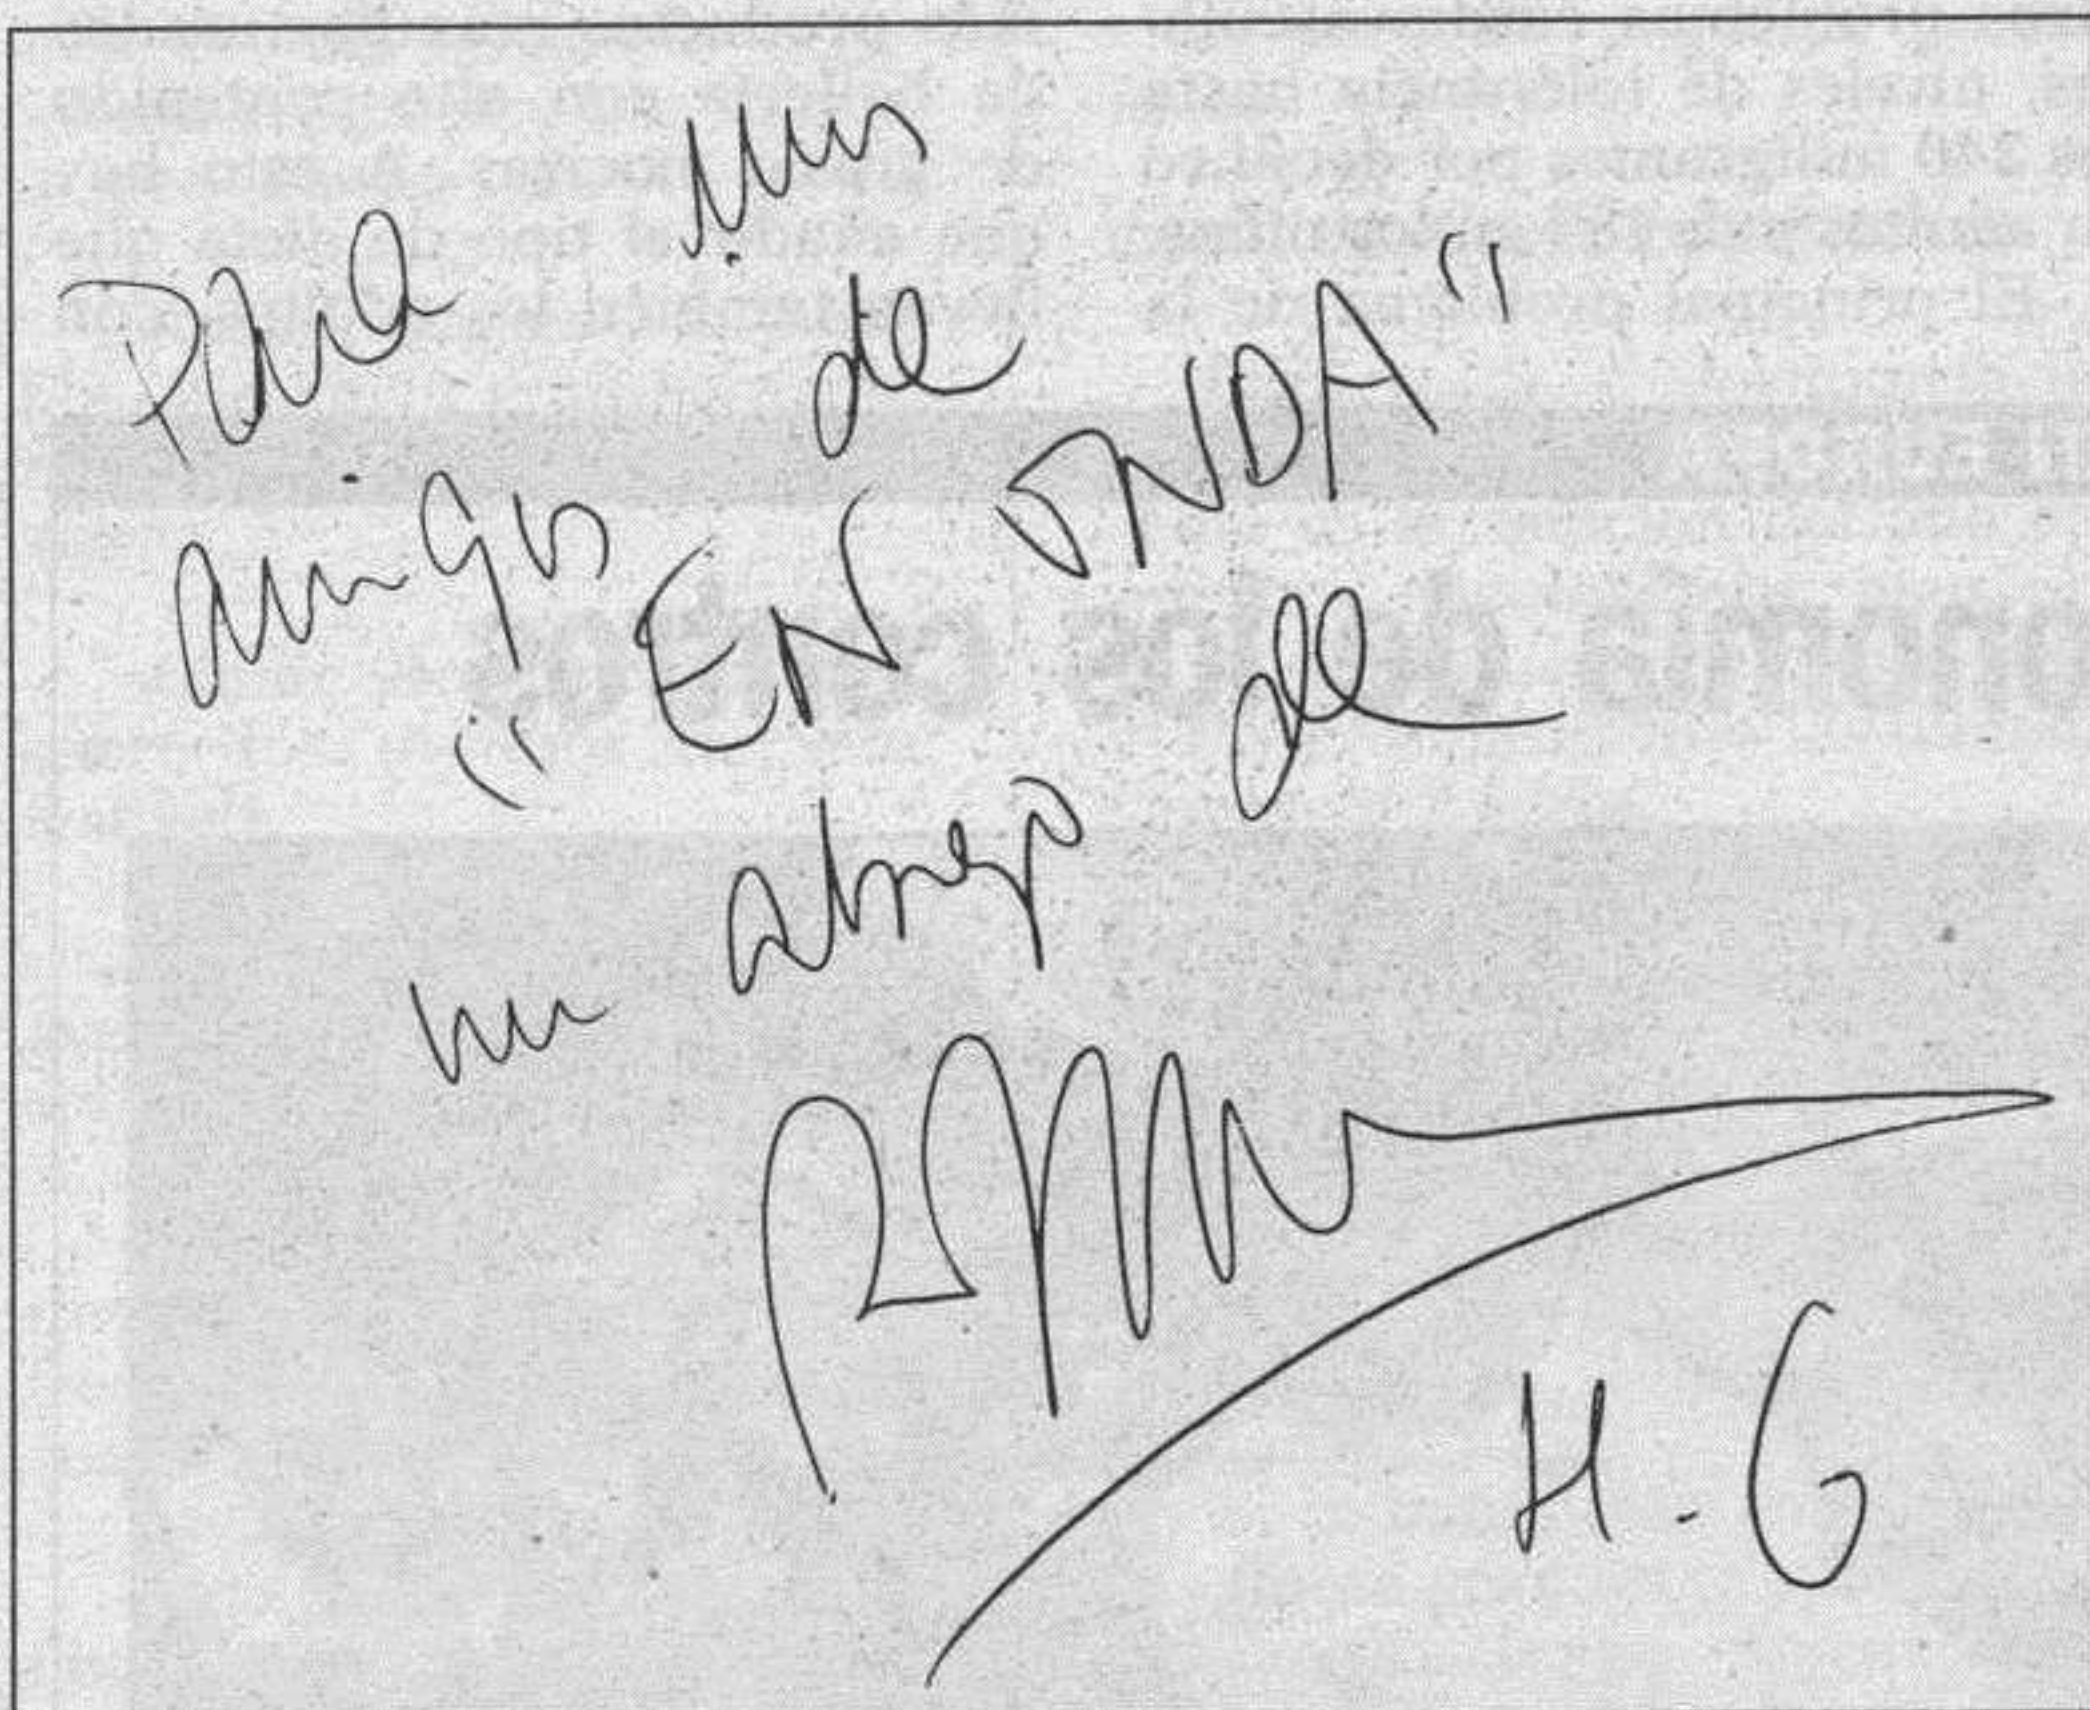 Para mis
amigos de
"EN ONDA"
un abrazo de
H. G